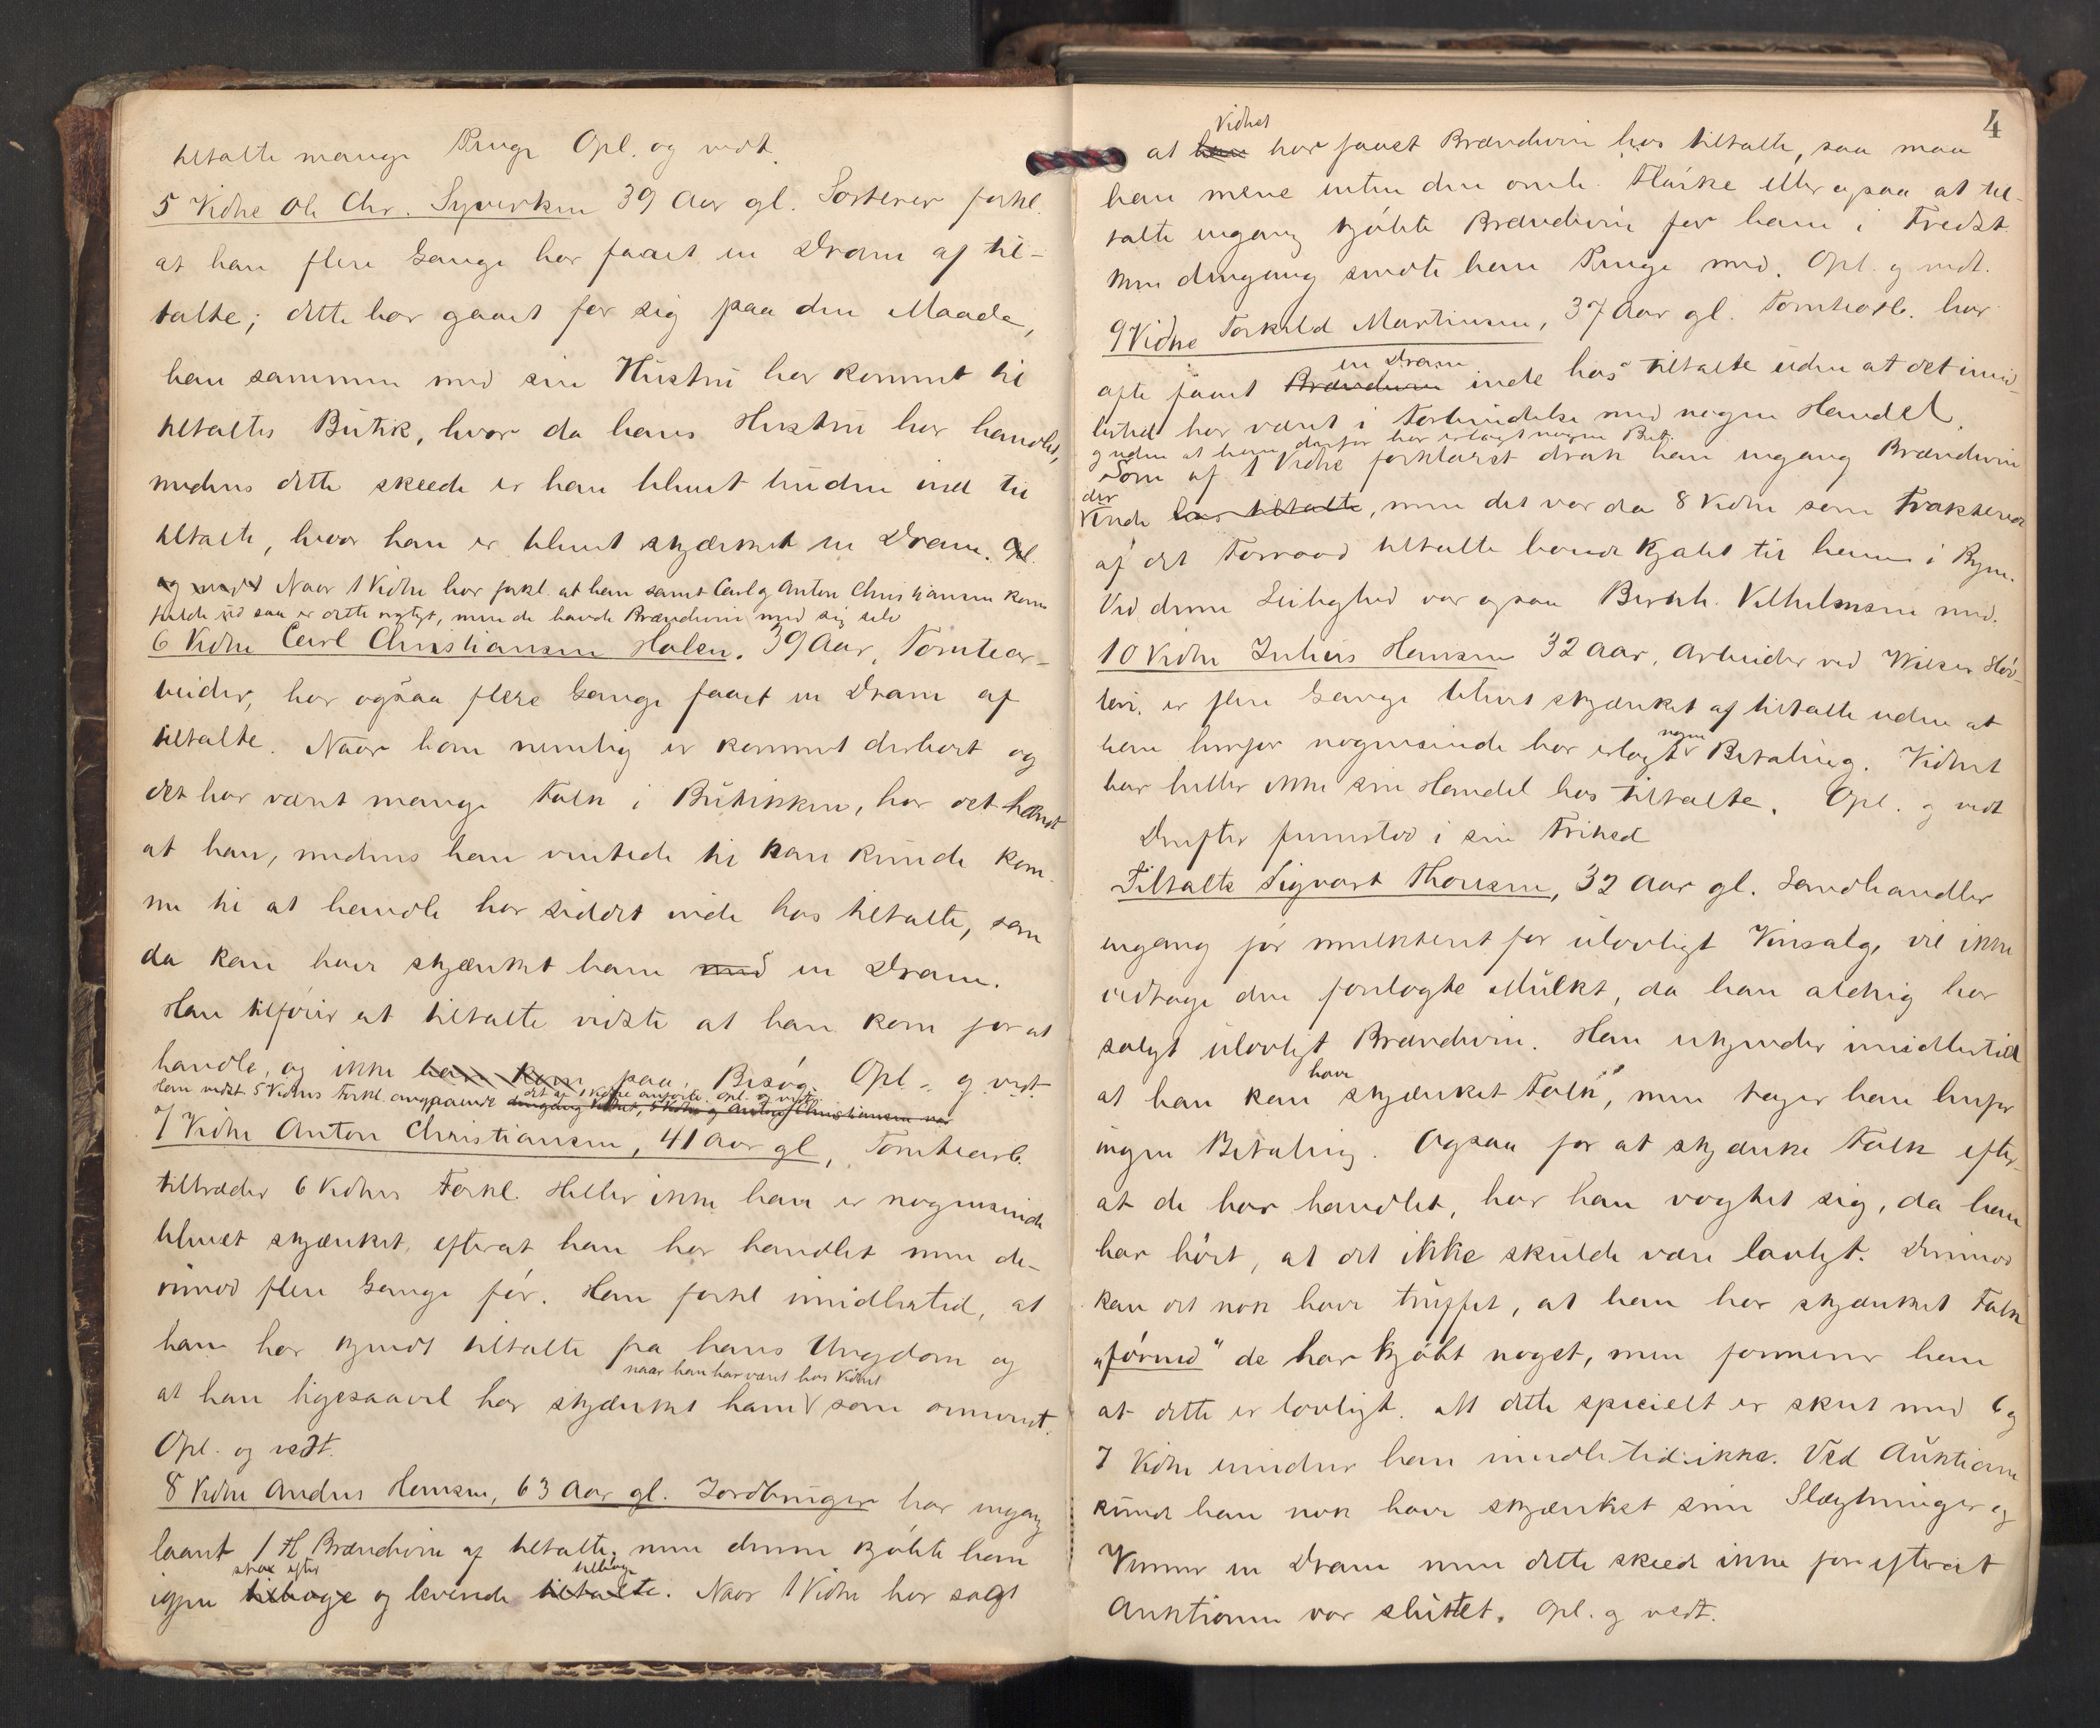 tiltalte mange Penge Opl. og vedt.
5 Vidne Ole Chr. Syversen 39 Aar gl. Sorterer forkl.
at han flere Gange har faaet en Dram af til-
talte; dette har gaaet for sig paa den Maade,
han sammen med sin Hustru har kommet til
tiltaltes Butik, hvor da hans Hustru har handlet,
medens dette skeede er han blevet buden ind til
tiltalte, hvor han er blevet skjænket en Dram. Opl.
og vedt Naar 1 Vidne har forkl. at han samt Carl og Anton Christiansen kom
fulde ud saa er dette rigtigt, men de havde Brændevin med sig selv
6 Vidne Carl Christiansen Holen, 39 Aar, Tomtear-
beider, har ogsaa flere Gange faaet en Dram af
tiltalte. Naar han nemlig er kommet derbort og
det har været mange Folk i Butikken, har det hændt
at han, medens han ventede til han kunde kom-
me til at handle har siddet inde hos tiltalte, som
da kan have skjænket ham med en Dram.
Han tilføier at tiltalte vidste at han kom for at
handle, og ikke ham kom paa Besøg. Opl. og vedt.
Han vedst 5 Vidnes Forkl. angaaende det af 1 Vidne anførte. Opl. og vedt.
dengang Vidnet, 5 Vidne og Anton Christiansen var
7 Vidne Anton Christiansen, 41 Aar gl, Tomtearb.
tiltræder 6 Vidnes Forkl. Heller ikke han er nogensinde
blevet skjænket, efterat han har handlet men de-
rimod flere Gange før. Han forkl imidlertid, at
han har kjendt tiltalte fra hans Ungdom og
naar han har været hos Vidnet
at han ligesaavel har skjænket ham som omvendt.
Opl. og vedt.
8 Vidne Anders Hansen, 63 Aar gl. Jordbruger har engang
laant 1 Fl. Brændevin af tiltalte, men denne kjøbte han
strax efter tilbage
igjen tilbage og leverede tiltalte. Naar 1 Vidne har sagt
4
Vidnet
at han har faaet Brændevin hos tiltalte, saa maa
han mene enten den omh. Flaske eller ogsaa at til-
talte engang kjøbte Brændevin for ham i Fredst.
Men dengang sendte han Penge med. Opl. og vedt.
9 Vidne Torkild Martinsen, 37 Aar gl. Tomtearb. har
en Dram
ofte faaet Brændevin inde hos tiltalte uden at det imid-
lertid har været i Forbindelse med nogen Handel,
og uden at han derfor har erlagt nogen Bet.
Som af 1 Vidne forklaret drak han engang Brændevin
der
inde hos tiltalte, men det var da 8 Vidne som trakterede
af det Forraad tiltalte havde kjøbt til ham i Byen.
Ved denne Leilighed var ogsaa Bernh. Vilhelmsen med.
10 Vidne Julius Hansen 32 Aar, Arbeider ved Wieses Høv-
leri, er flere Gange blevet skjænket af tiltalte uden at
nogen
han herfor nogensinde har erlagt Betaling. Vidnet
har heller ikke sin Handel hos tiltalte. Opl. og vedt
Derefter fremstod i sin Frihed
Tiltalte Sigvart Thoresen, 32 Aar gl. Landhandler
engang før mulkteret for ulovligt Vinsalg, vil ikke
vedtage den forelagte Mulkt, da han aldrig har
solgt ulovligt Brændevin. Han erkjender imidlertid
have
at han kan skjænket Folk, men tager han herfor
ingen Betaling. Ogsaa for at skjænke Folk efter-
at de har handlet, har han vogtet sig, da han
har hørt, at det ikke skulde være lovligt. Derimod
kan det nok have truffet, at han har skjænket Folk
„førend" de har kjøbt noget, men formener han
at dette er lovligt. At dette specielt er skeet med 6 og
7 Vidne erindrer han imidlertid ikke. Ved Auktionen
kunde han nok have skjænket sine Slægtninger og
Venner en Dram men dette skeede ikke før efterat
Auktionen var sluttet. Opl. og vedt.